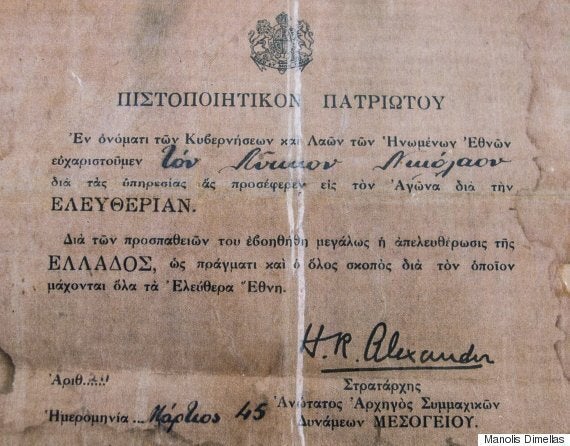 ΠΙΣΤΟΠΟΙΗΤΙΚΟΝ ΠΑΤΡΙΩΤΟΥ
Ἐν ὀνόματι τῶν Κυβερνήσεων καὶ Λαῶν τῶν Ἡνωμένων Ἐθνῶν
εὐχαριστοῦμεν τόν Νικόλαον
διὰ τὰς ὑπηρεσίας ἃς προσέφερεν εἰς τὸν Ἀγῶνα διὰ τὴν
ΕΛΕΥΘΕΡΙΑΝ.
Διὰ τῶν προσπαθειῶν του ἐβοηθήθη μεγάλως ἡ ἀπελευθέρωσις τῆς
ΕΛΛΑΔΟΣ, ὡς πράγματι καὶ ὁ ὅλος σκοπὸς διὰ τὸν ὁποῖον
μάχονται ὅλα τὰ Ἐλεύθερα Ἔθνη.
H.R. Alexander
Ἀριθ.
Στρατάρχης
Ἀνώτατος Ἀρχηγὸς Συμμαχικῶν
Ἡμερομηνία Μάρτιος 45
Δυνάμεων ΜΕΣΟΓΕΙΟΥ.
Manolis Dimellas